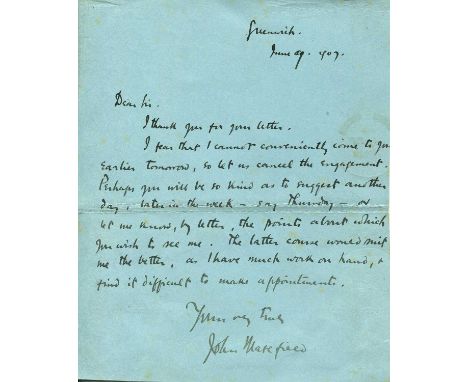 Greenwich.
June 29. 1907.
Dear Sir.
I thank you for your letter.
I fear that I cannot conveniently come to you
earlier tomorrow, so let us cancel the engagement.
Perhaps you will be so kind as to suggest another
day, later in the week – say Thursday – or
let me know, by letter, the points about which
you wish to see me. The latter course would suit
me the better, as I have much work on hand, &
find it difficult to make appointments.
Yours very truly
John Masefield